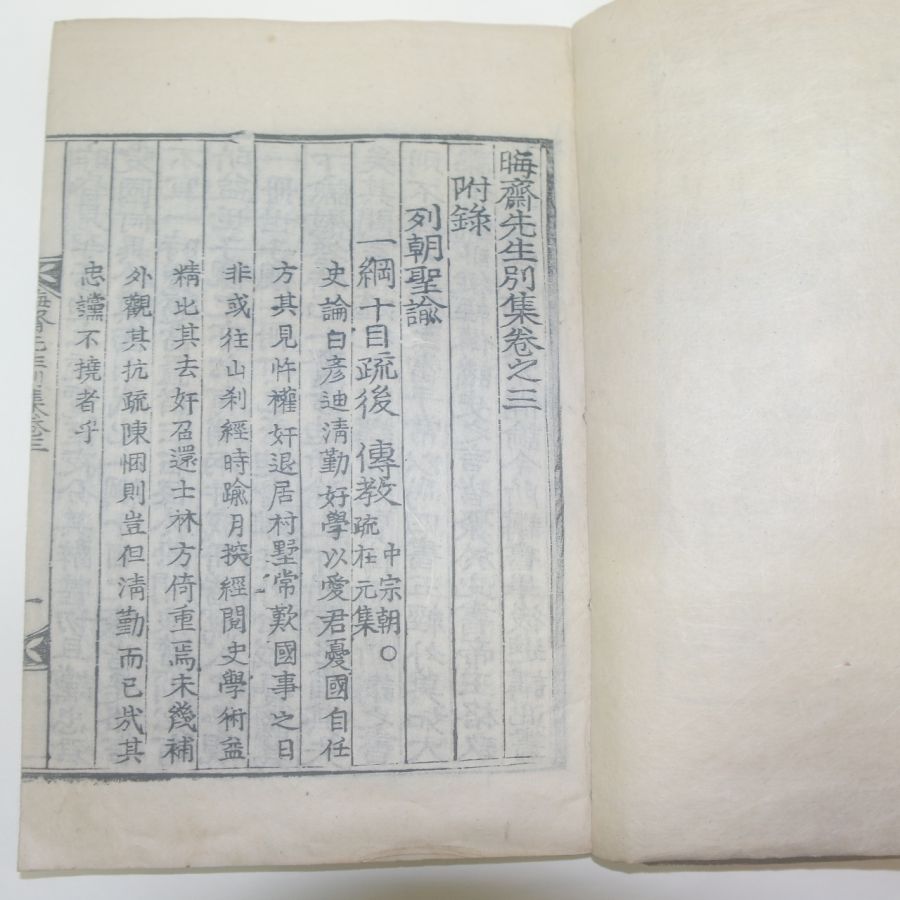 晦齋先生別集卷之三
附錄
列朝聖諭
一綱十目疏後 傳敎 中宗朝○疏在元集
史論曰彦迪淸勤好學以愛君憂國自任
方其見忤權奸退居村墅常歎國事之日
非或往山刹經時踰月搜經閱史學術益
精比其去奸召還士林方倚重焉未幾補
外觀其抗疏陳悃則豈但淸勤而已哉其
忠讜不撓者乎
晦齋先生別集卷三
一